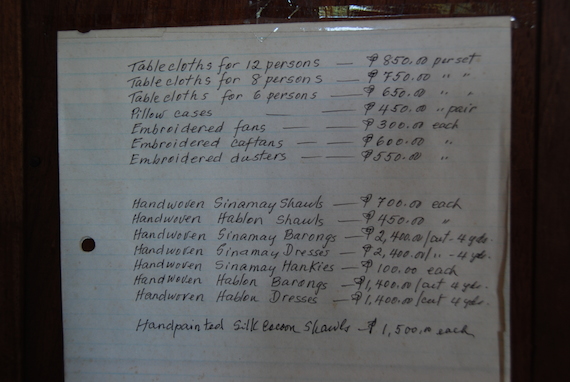 Tablecloths for 12 persons — ₱ 850.00 per set
Tablecloths for 8 persons — ₱ 750.00 " "
Tablecloths for 6 persons — ₱ 650.00 " "
Pillow cases — ₱ 450.00 " pair
Embroidered fans — — ₱ 300.00 each
Embroidered caftans — — ₱ 600.00 "
Embroidered dusters — — ₱ 550.00 "
Handwoven Sinamay Shawls — ₱ 700.00 each
Handwoven Hablon Shawls — ₱ 450.00 "
Handwoven Sinamay Barongs — ₱ 2,400.00/cut - 4 yds.
Handwoven Sinamay Dresses — ₱ 2,400.00/ " - 4 yds.
Handwoven Sinamay Hankies — ₱ 100.00 each
Handwoven Hablon Barongs — ₱ 1,400.00/cut 4 yds.
Handwoven Hablon Dresses — ₱ 1,400.00/cut 4 yds.
Handpainted Silk Cocoon Shawls — ₱ 1,500.00 each